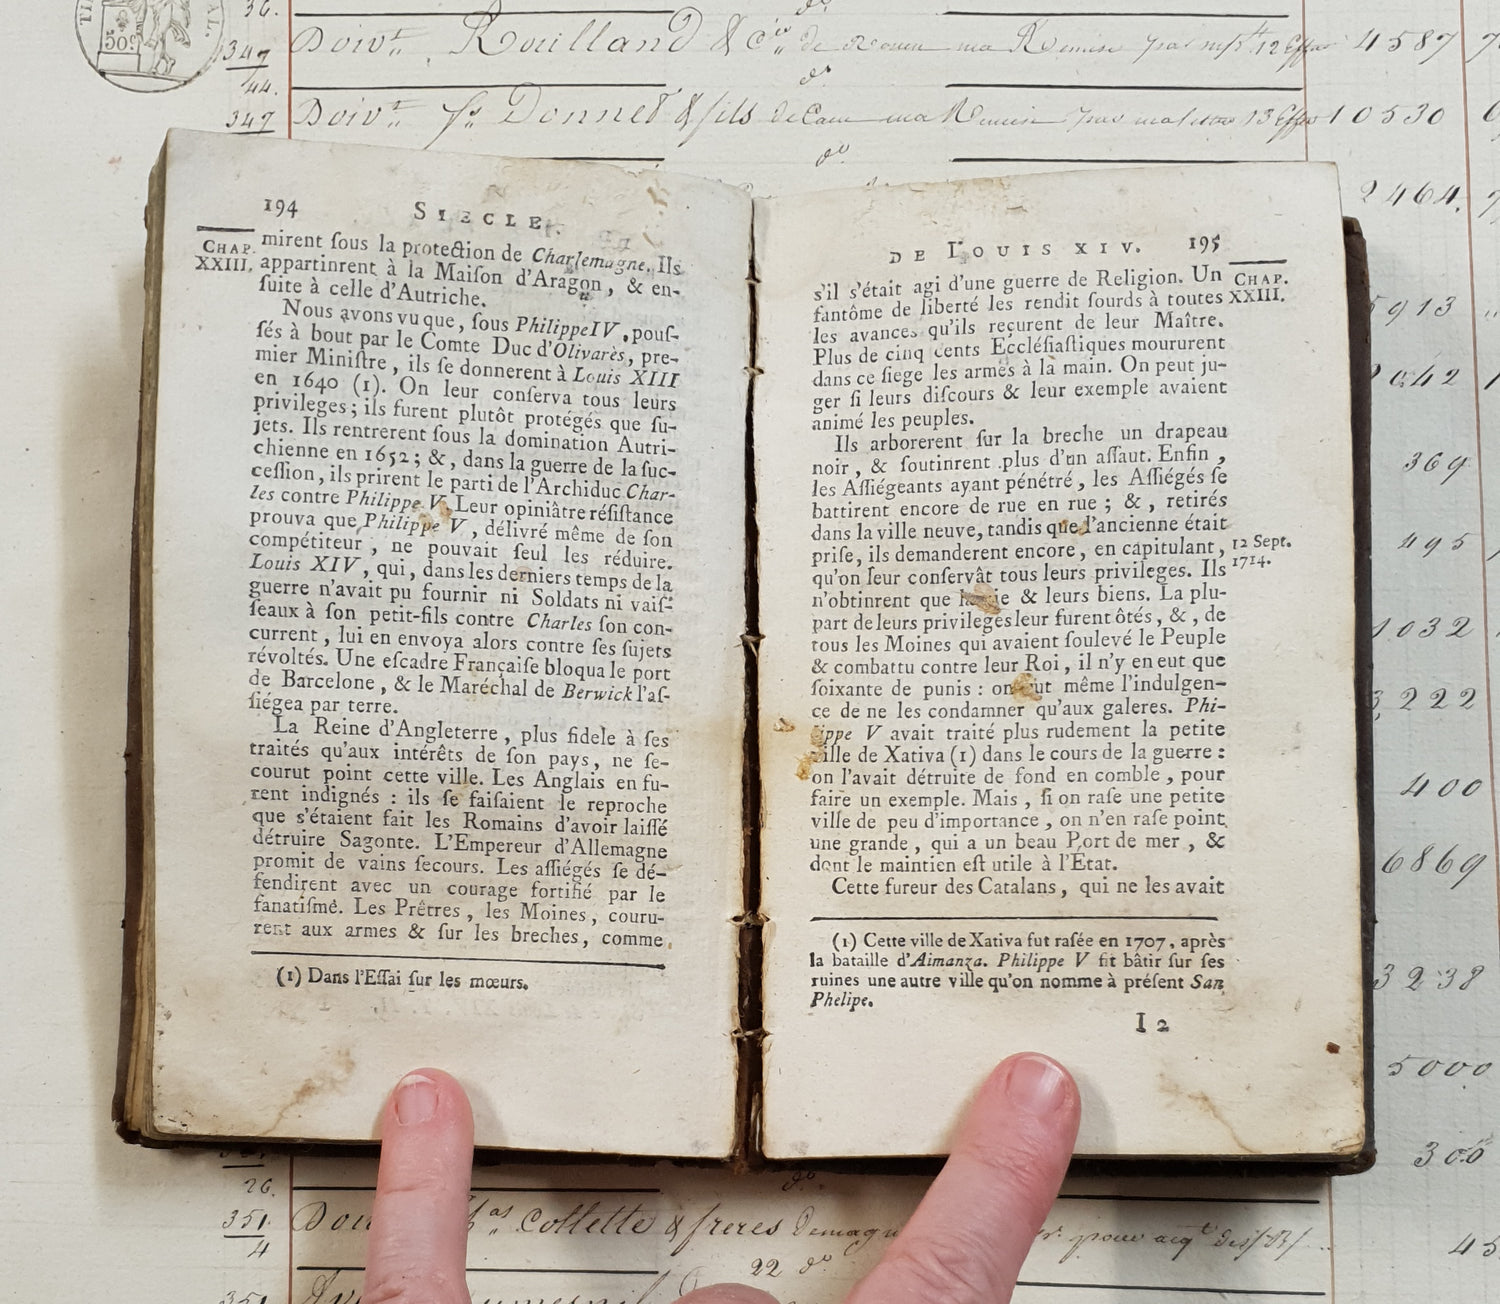 36.
347 Doivt Rouilland & Cie de Rouen ma Remise par 12 Effets 4587
do
44.
347 Doivt Donnet & fils de Caen ma Remise par ma lettre 13 Effets 10530
do
2464.
5913
2042
369
495
1032
3222
400
6869
3238
5000
300
194
SIECLE
CHAP.
XXIII.
mirent ſous la protection de Charlemagne. Ils
appartinrent à la Maiſon d'Aragon, & en-
ſuite à celle d'Autriche.
Nous avons vu que, ſous Philippe IV, pouſ-
ſés à bout par le Comte Duc d'Olivarès, pre-
mier Miniſtre, ils ſe donnerent à Louis XIII
en 1640 (1). On leur conſerva tous leurs
privileges; ils furent plutôt protégés que ſu-
jets. Ils rentrerent ſous la domination Autri-
chienne en 1652; &, dans la guerre de la ſuc-
ceſſion, ils prirent le parti de l'Archiduc Char-
les contre Philippe V. Leur opiniâtre réſiſtance
prouva que Philippe V, délivré même de ſon
compétiteur, ne pouvait ſeul les réduire.
Louis XIV, qui, dans les derniers temps de la
guerre n'avait pu fournir ni Soldats ni vaiſ-
ſeaux à ſon petit-fils contre Charles ſon con-
current, lui en envoya alors contre ſes ſujets
révoltés. Une eſcadre Françaiſe bloqua le port
de Barcelone, & le Maréchal de Berwick l'aſ-
ſiégea par terre.
La Reine d'Angleterre, plus fidele à ſes
traités qu'aux intérêts de ſon pays, ne ſe-
courut point cette ville. Les Anglais en fu-
rent indignés : ils ſe faiſaient le reproche
que s'étaient fait les Romains d'avoir laiſſé
détruire Sagonte. L'Empereur d'Allemagne
promit de vains ſecours. Les aſſiégés ſe dé-
fendirent avec un courage fortifié par le
fanatiſme. Les Prêtres, les Moines, couru-
rent aux armes & ſur les breches, comme
(1) Dans l'Eſſai ſur les mœurs.
DE LOUIS XIV. 195
CHAP.
XXIII.
s'il s'était agi d'une guerre de Religion. Un
fantôme de liberté les rendit ſourds à toutes
les avances qu'ils reçurent de leur Maître.
Plus de cinq cents Eccléſiaſtiques moururent
dans ce ſiege les armes à la main. On peut ju-
ger ſi leurs diſcours & leur exemple avaient
animé les peuples.
Ils arborerent ſur la breche un drapeau
noir, & ſoutinrent plus d'un aſſaut. Enfin,
les Aſſiégeants ayant pénétré, les Aſſiégés ſe
battirent encore de rue en rue; &, retirés
dans la ville neuve, tandis que l'ancienne était
priſe, ils demanderent encore, en capitulant,
12 Sept.
1714.
qu'on leur conſervât tous leurs privileges. Ils
n'obtinrent que la vie & leurs biens. La plu-
part de leurs privileges leur furent ôtés, &, de
tous les Moines qui avaient ſoulevé le Peuple
& combattu contre leur Roi, il n'y en eut que
ſoixante de punis : on eut même l'indulgen-
ce de ne les condamner qu'aux galeres. Phi-
lippe V avait traité plus rudement la petite
ville de Xativa (1) dans le cours de la guerre :
on l'avait détruite de fond en comble, pour
faire un exemple. Mais, ſi on raſe une petite
ville de peu d'importance, on n'en raſe point
une grande, qui a un beau Port de mer, &
dont le maintien eſt utile à l'Etat.
Cette fureur des Catalans, qui ne les avait
(1) Cette ville de Xativa fut raſée en 1707, après
la bataille d'Aimanza. Philippe V fit bâtir ſur ſes
ruines une autre ville qu'on nomme à préſent San
Phelipe.
I 2
26.
351 Collette & freres
4
22 do
351